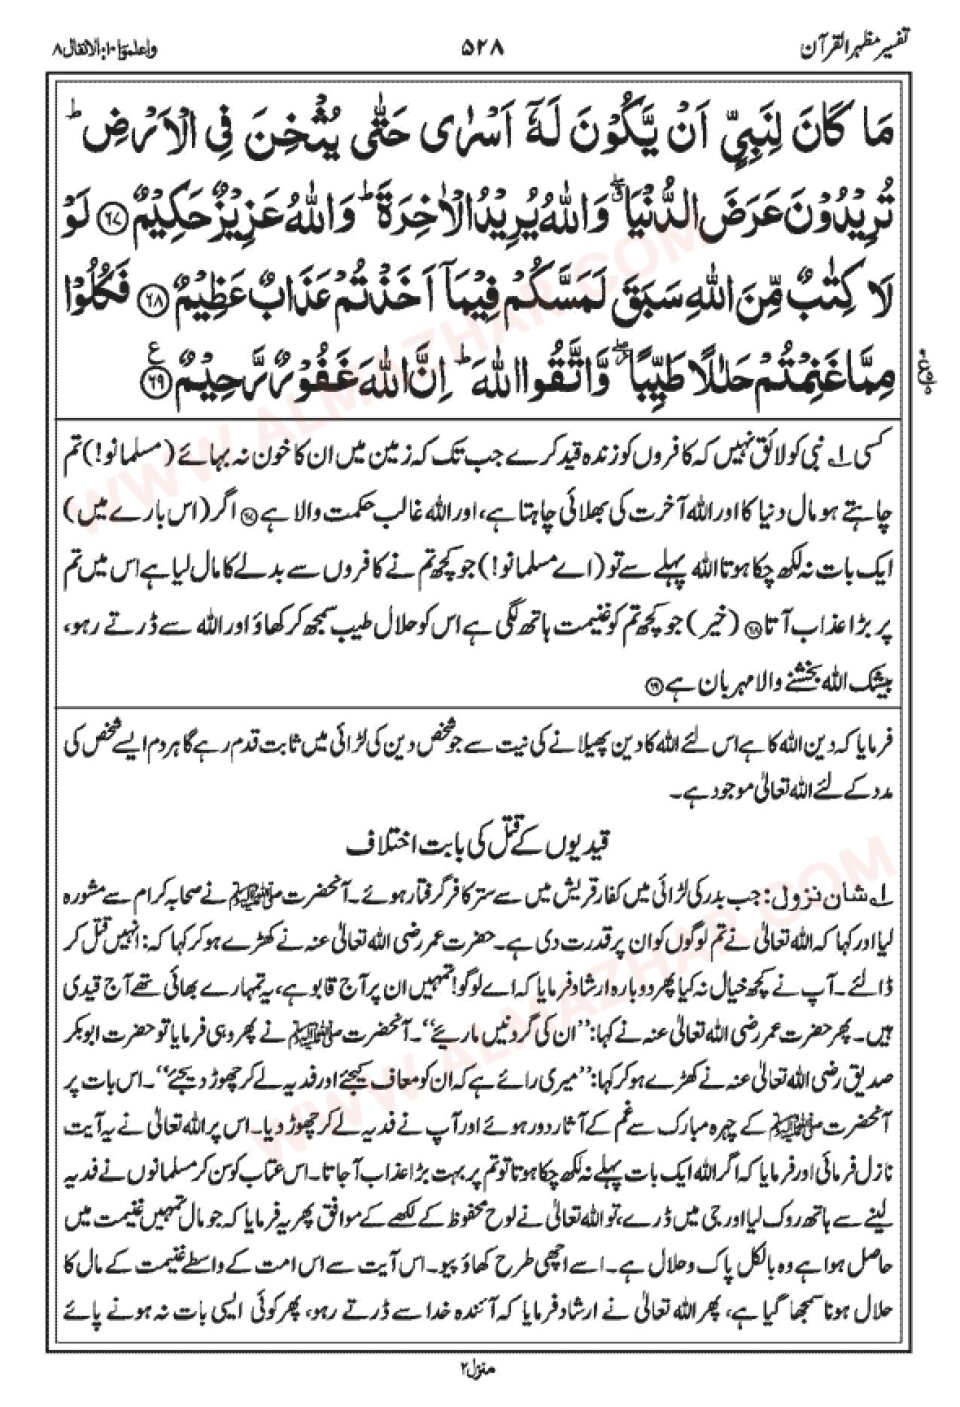 تفسیر مظہر القرآن
۵۲۸
واعلموا۱۰: الانفال۸
مَا كَانَ لِنَبِيٍّ اَنْ يَّكُوْنَ لَهٗۤ اَسْرٰى حَتّٰى يُثْخِنَ فِى الْاَرْضِ ؕ
تُرِيْدُوْنَ عَرَضَ الدُّنْيَا ۖۗ وَاللّٰهُ يُرِيْدُ الْاٰخِرَةَ ؕ وَاللّٰهُ عَزِيْزٌ حَكِيْمٌ ﴿۶۷﴾ لَوْ
لَا كِتٰبٌ مِّنَ اللّٰهِ سَبَقَ لَمَسَّكُمْ فِيْمَاۤ اَخَذْتُمْ عَذَابٌ عَظِيْمٌ ﴿۶۸﴾ فَكُلُوْا
مِمَّا غَنِمْتُمْ حَلٰلًا طَيِّبًا ۖؗ وَّاتَّقُوا اللّٰهَ ؕ اِنَّ اللّٰهَ غَفُوْرٌ رَّحِيْمٌ ﴿۶۹﴾ ع
کسی ۱؎ نبی کو لائق نہیں کہ کافروں کو زندہ قید کرے جب تک کہ زمین میں ان کا خون نہ بہائے (مسلمانو!) تم
چاہتے ہو مال دنیا کا اور اللہ آخرت کی بھلائی چاہتا ہے، اور اللہ غالب حکمت والا ہے ﴿۶۷﴾ اگر (اس بارے میں)
ایک بات نہ لکھ چکا ہوتا اللہ پہلے سے تو (اے مسلمانو!) جو کچھ تم نے کافروں سے بدلے کا مال لیا ہے اس میں تم
پر بڑا عذاب آتا ﴿۶۸﴾ (خیر) جو کچھ تم کو غنیمت ہاتھ لگی ہے اس کو حلال طیب سمجھ کر کھاؤ اور اللہ سے ڈرتے رہو،
بیشک اللہ بخشنے والا مہربان ہے ﴿۶۹﴾
فرمایا کہ دین اللہ کا ہے اس لئے اللہ کا دین پھیلانے کی نیت سے جو شخص دین کی لڑائی میں ثابت قدم رہے گا ہر دم ایسے شخص کی
مدد کے لئے اللہ تعالیٰ موجود ہے۔
قیدیوں کے قتل کی بابت اختلاف
۱؎ شان نزول: جب بدر کی لڑائی میں کفار قریش میں سے ستر کافر گرفتار ہوئے۔ آنحضرت ﷺ نے صحابہ کرام سے مشورہ
لیا اور کہا کہ اللہ تعالیٰ نے تم لوگوں کو ان پر قدرت دی ہے۔ حضرت عمر رضی اللہ تعالیٰ عنہ نے کھڑے ہو کر کہا کہ: انہیں قتل کر
ڈالئے۔ آپ نے کچھ خیال نہ کیا پھر دوبارہ ارشاد فرمایا کہ اے لوگو! تمہیں ان پر آج قابو ہے، یہ تمہارے بھائی تھے آج قیدی
ہیں۔ پھر حضرت عمر رضی اللہ تعالیٰ عنہ نے کہا: ’’ان کی گردنیں ماریئے‘‘۔ آنحضرت ﷺ نے پھر وہی فرمایا تو حضرت ابوبکر
صدیق رضی اللہ تعالیٰ عنہ نے کھڑے ہو کر کہا: ’’میری رائے ہے کہ ان کو معاف کیجئے اور فدیہ لے کر چھوڑ دیجئے‘‘۔ اس بات پر
آنحضرت ﷺ کے چہرہ مبارک سے غم کے آثار دور ہوئے اور آپ نے فدیہ لے کر چھوڑ دیا۔ اس پر اللہ تعالیٰ نے یہ آیت
نازل فرمائی اور فرمایا کہ اگر اللہ ایک بات پہلے نہ لکھ چکا ہوتا تو تم پر بہت بڑا عذاب آجاتا۔ اس عتاب کو سن کر مسلمانوں نے فدیہ
لینے سے ہاتھ روک لیا اور جی میں ڈرے، تو اللہ تعالیٰ نے لوح محفوظ کے لکھے کے موافق پھر یہ فرمایا کہ جو مال تمہیں غنیمت میں
حاصل ہوا ہے وہ بالکل پاک و حلال ہے۔ اسے اچھی طرح کھاؤ پیو۔ اس آیت سے اس امت کے واسطے غنیمت کے مال کا
حلال ہونا سمجھا گیا ہے، پھر اللہ تعالیٰ نے ارشاد فرمایا کہ آئندہ خدا سے ڈرتے رہو، پھر کوئی ایسی بات نہ ہونے پائے
منزل۲
WWW.ALMAZHAR.COM
WWW.ALMAZHAR.COM